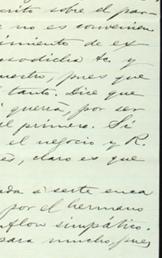 rito sobre el par
no es convenien
imiento de ex
codicilo &c. y
uestro, pues que
tanto. Dice que
i querrá, por ser
el primero. Si
el negocio y R.
claro es que
da á este enca
por el hermano
simpático.
para mucho, pues